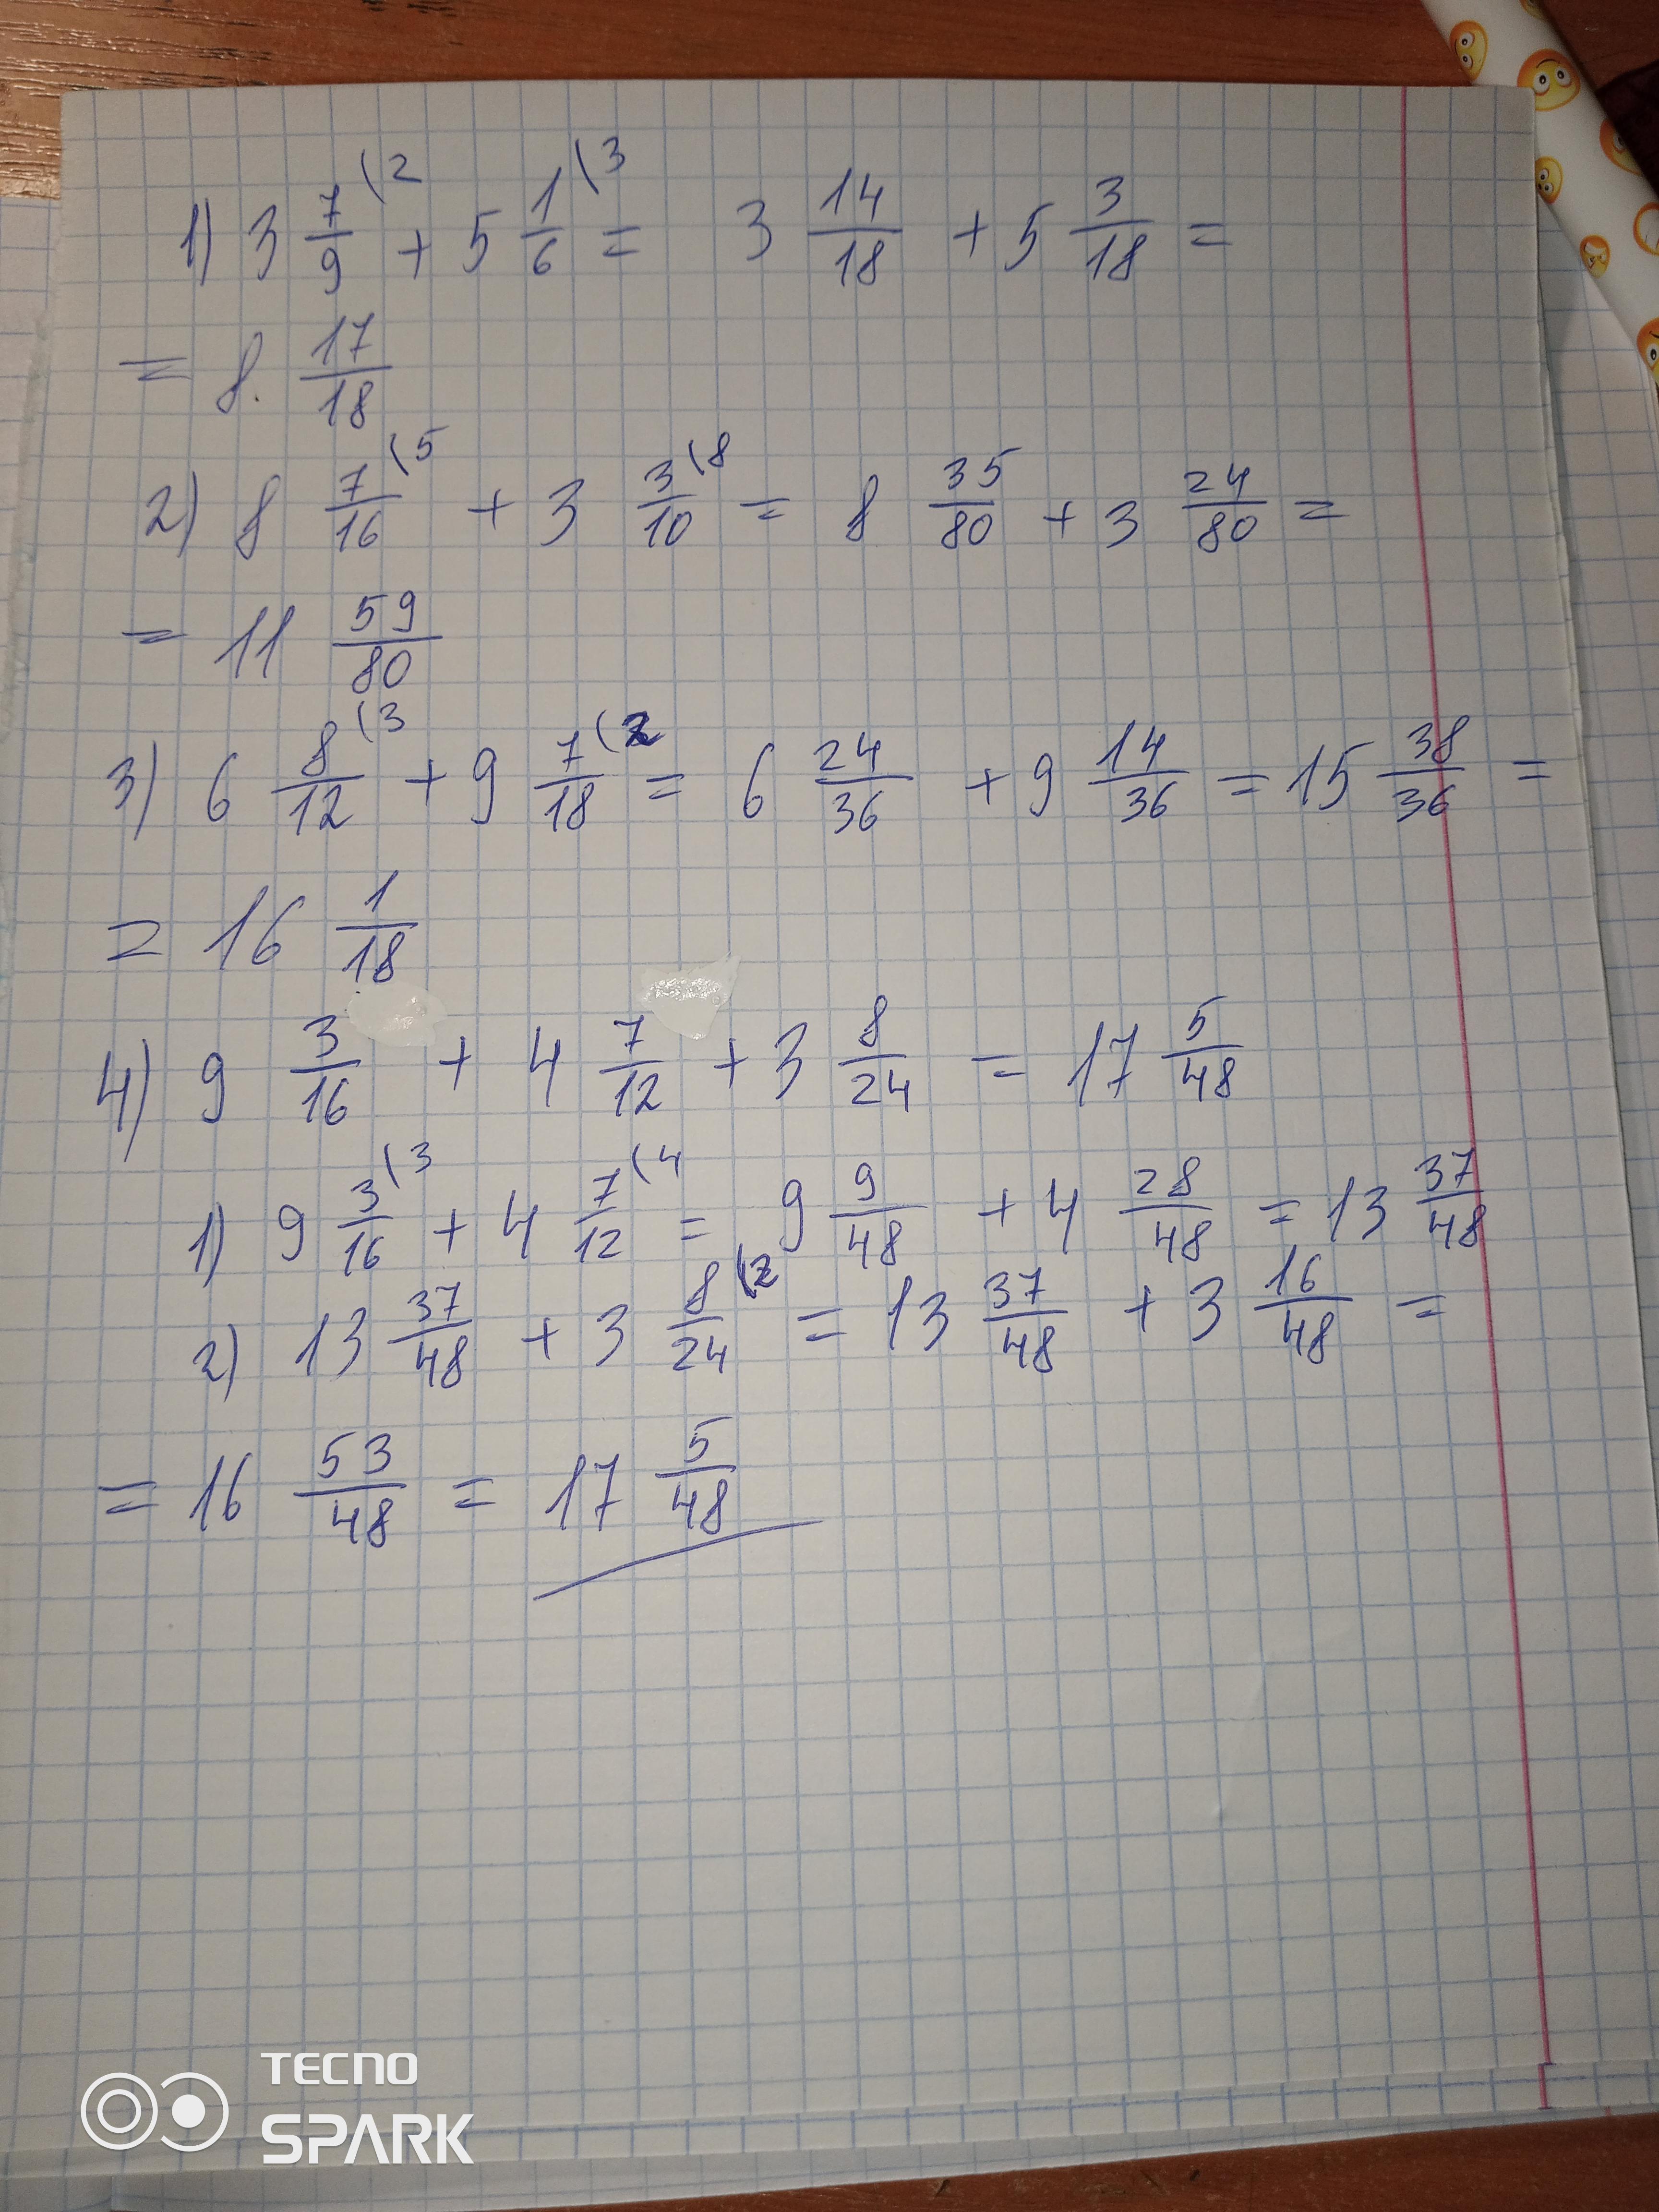 1) 3 7/9 (2 + 5 1/6 (3 = 3 14/18 + 5 3/18 =
= 8. 17/18
2) 8 7/16 (5 + 3 3/10 (8 = 8 35/80 + 3 24/80 =
= 11 59/80
3) 6 8/12 (3 + 9 7/18 (2 = 6 24/36 + 9 14/36 = 15 38/36 =
= 16 1/18
4) 9 3/16 + 4 7/12 + 3 8/24 = 17 5/48
1) 9 3/16 (3 + 4 7/12 (4 = 9 9/48 + 4 28/48 = 13 37/48
2) 13 37/48 + 3 8/24 (2 = 13 37/48 + 3 16/48 =
= 16 53/48 = 17 5/48
TECNO
SPARK